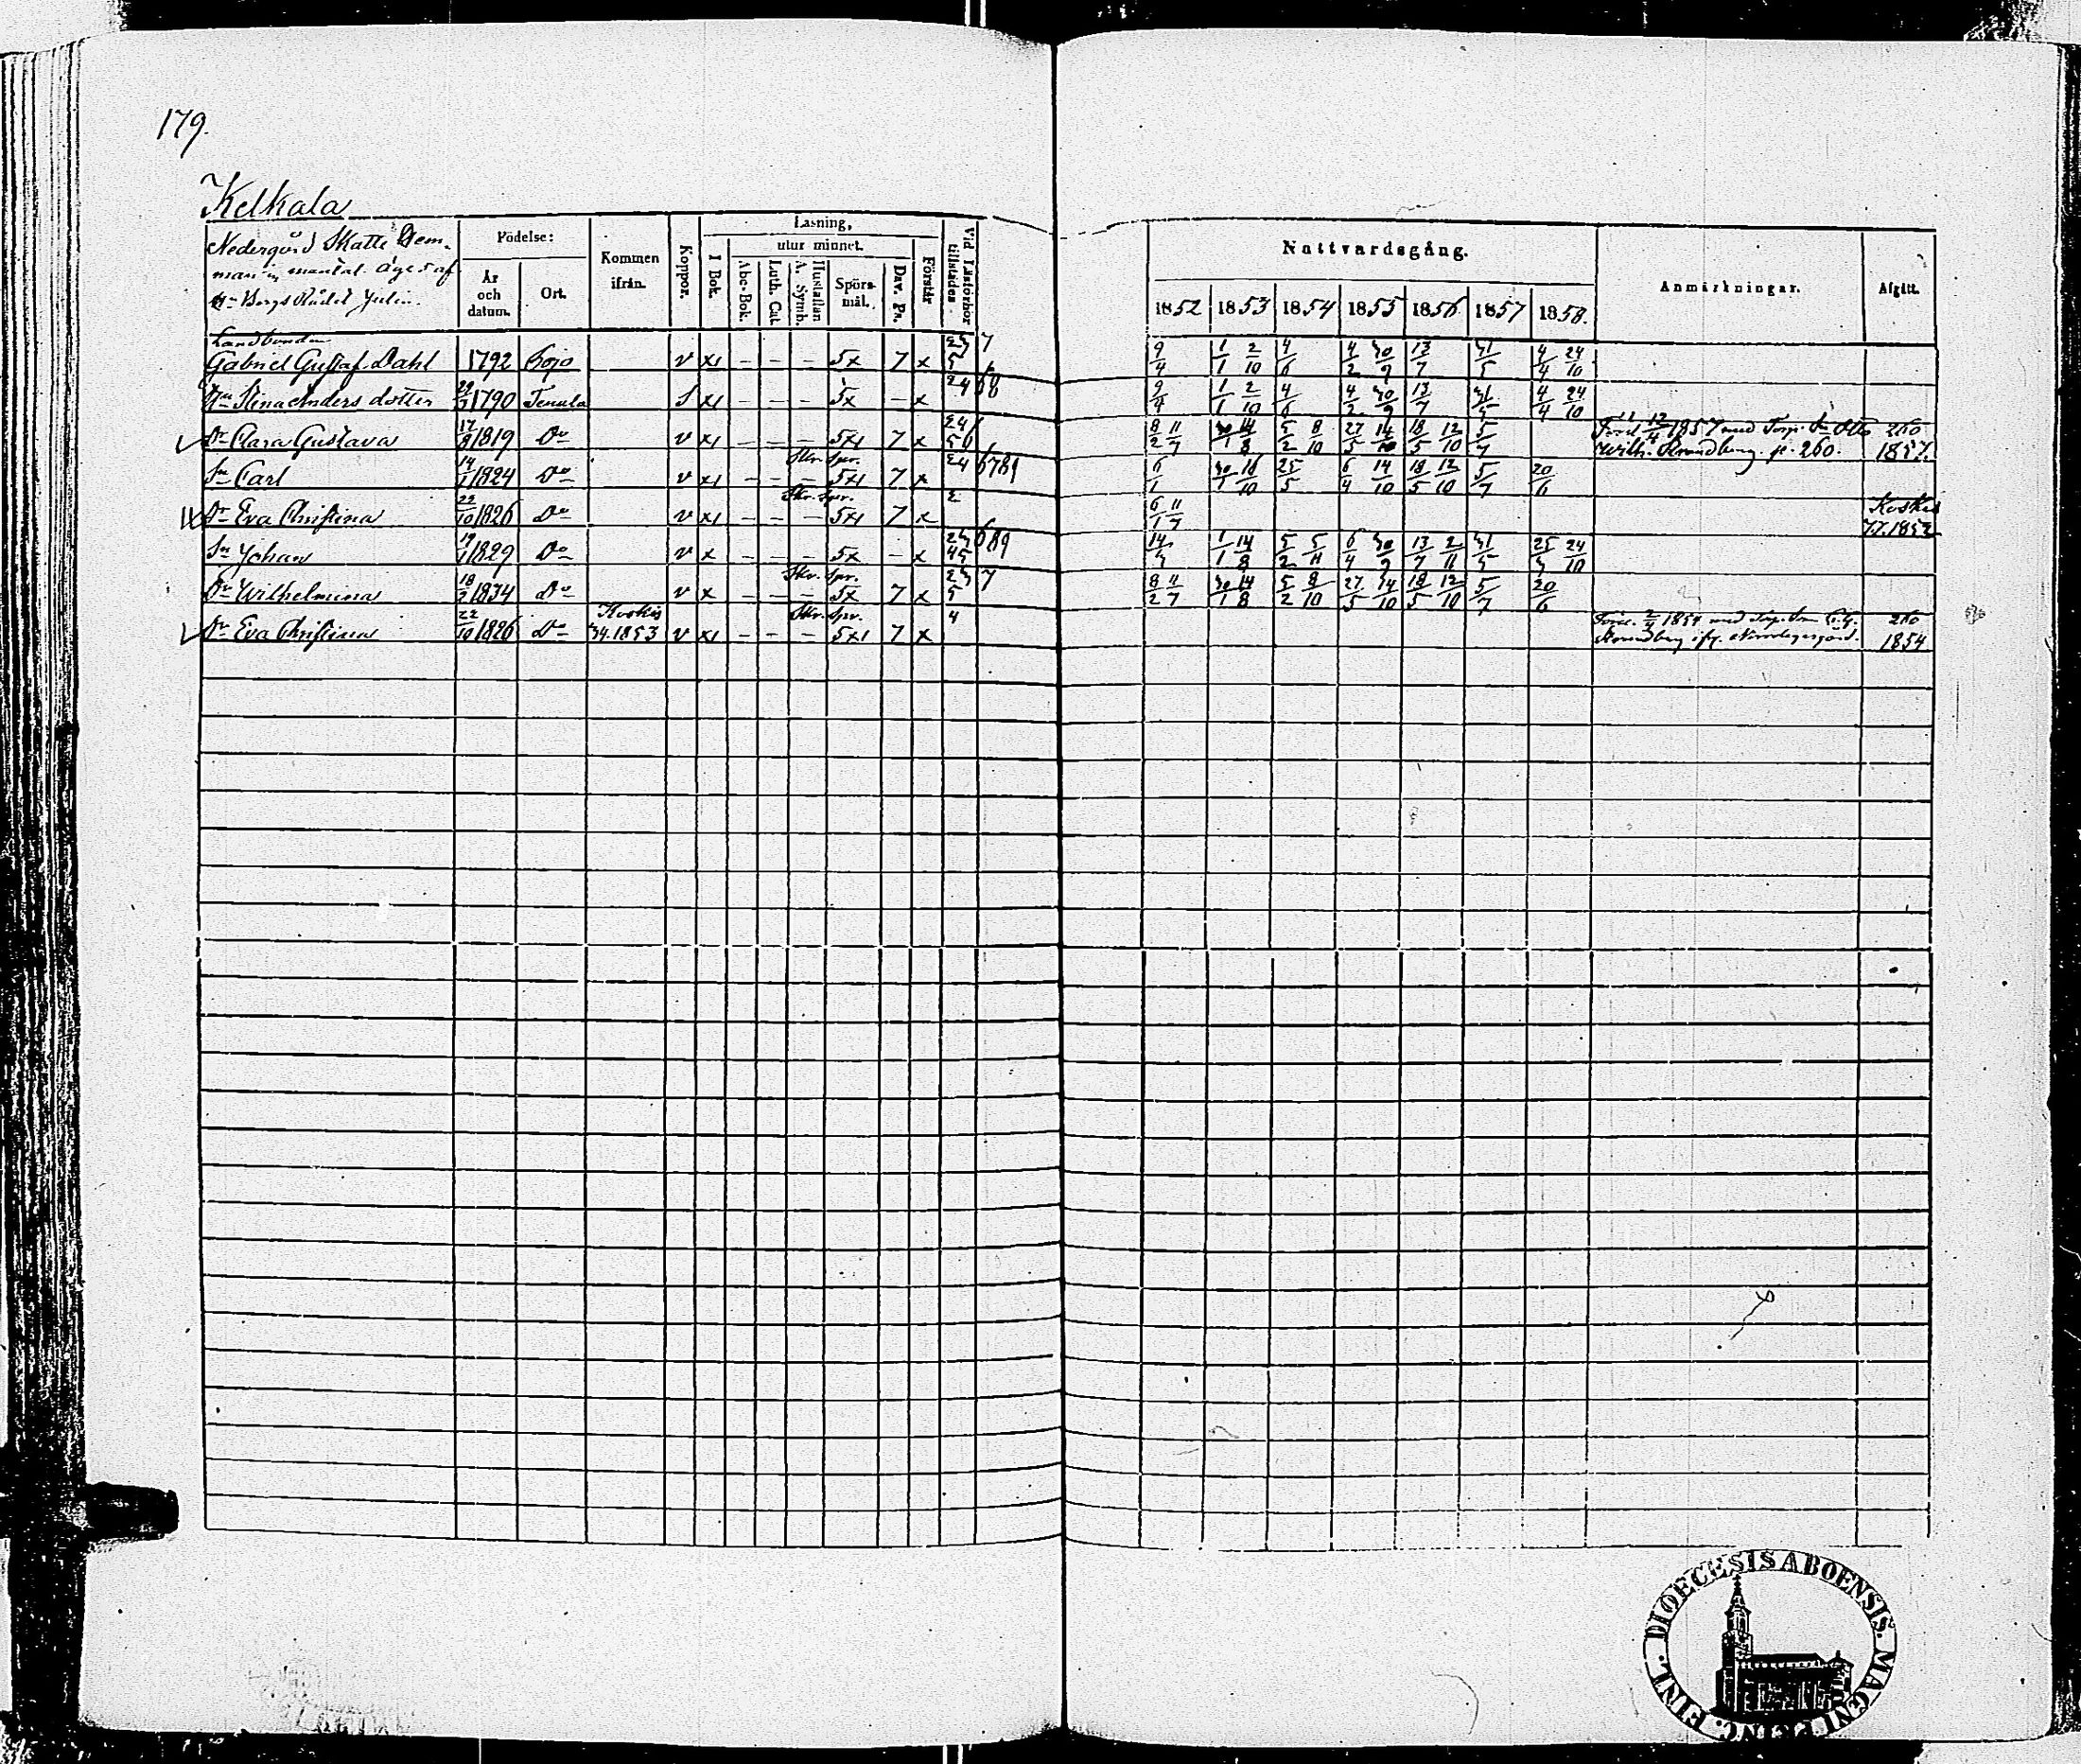 179.
Kelkala
Nedergård Skatte Hem-
man ½ mantal. äges af
Hr Bergs Rådet Julin.
Födelse:
År och datum.
Ort.
Kommen ifrån.
Koppor.
Läsning,
I Bok.
utur minnet.
Abc-Bok.
Luth. Cat.
Hustaflan A. Symb.
Spörsmål.
Dav. Ps.
Förstår
Vid Läseförhör tillstädes
Nattvardsgång.
1852 1853 1854 1855 1856 1857 1858.
Anmärkningar.
Afgått.
Landbonden
Gabriel Gustaf Dahl 1792 Pojo v x1 – – – 5x 7 x
9/4 1/1 2/10 4/6 4/2 30/9 13/7 31/5 4/4 24/10
Hu Stina Anders dotter 1790 Tenala x1 – – – 5x – x
9/4 1/1 2/10 4/6 4/2 30/9 13/7 31/5 4/4 24/10
Dr Clara Gustava 17/8 1819 Do v x1 – – – 5x1 7 x
8/2 11/7 30/1 14/8 5/2 8/10 27/5 14/10 18/5 12/10 5/7
1857 med Torp. Sn Otto
Wilh. Strandberg. p. 260.
260
1857.
Sn Carl 14/1 1824 Do v x1 – – – Skr. Spr. 5x1 7 x 24 6789
6/1 25/5 6/4 14/10 18/5 12/10 5/7 20/6
Dr Eva Christina 22/10 1826 Do v x1 – – – Skr. Spr. 5x1 7 x 2
6/1 11/7
Koskis
1852
Sn Johan 19/1 1829 Do v x – – – 5x – x 689
1/1 14/8 5/2 5/11 6/4 30/9 13/7 2/11 31/5 24/10
Dr Wilhelmina 18/2 1834 Do v x – – – Skr. Spr. 5x 7 x 7
8/2 11/7 30/1 14/8 5/2 8/10 27/5 14/10 18/5 12/10 5/7 20/6
Dr Eva Christina 22/10 1826 Do Koskis 1853 v x1 – – – Skr. Spr. 5x1 7 x 4
1854 med
Strandberg
260
1854
DIOECESIS ABOENSIS. MAGNI PRINC. FINL.